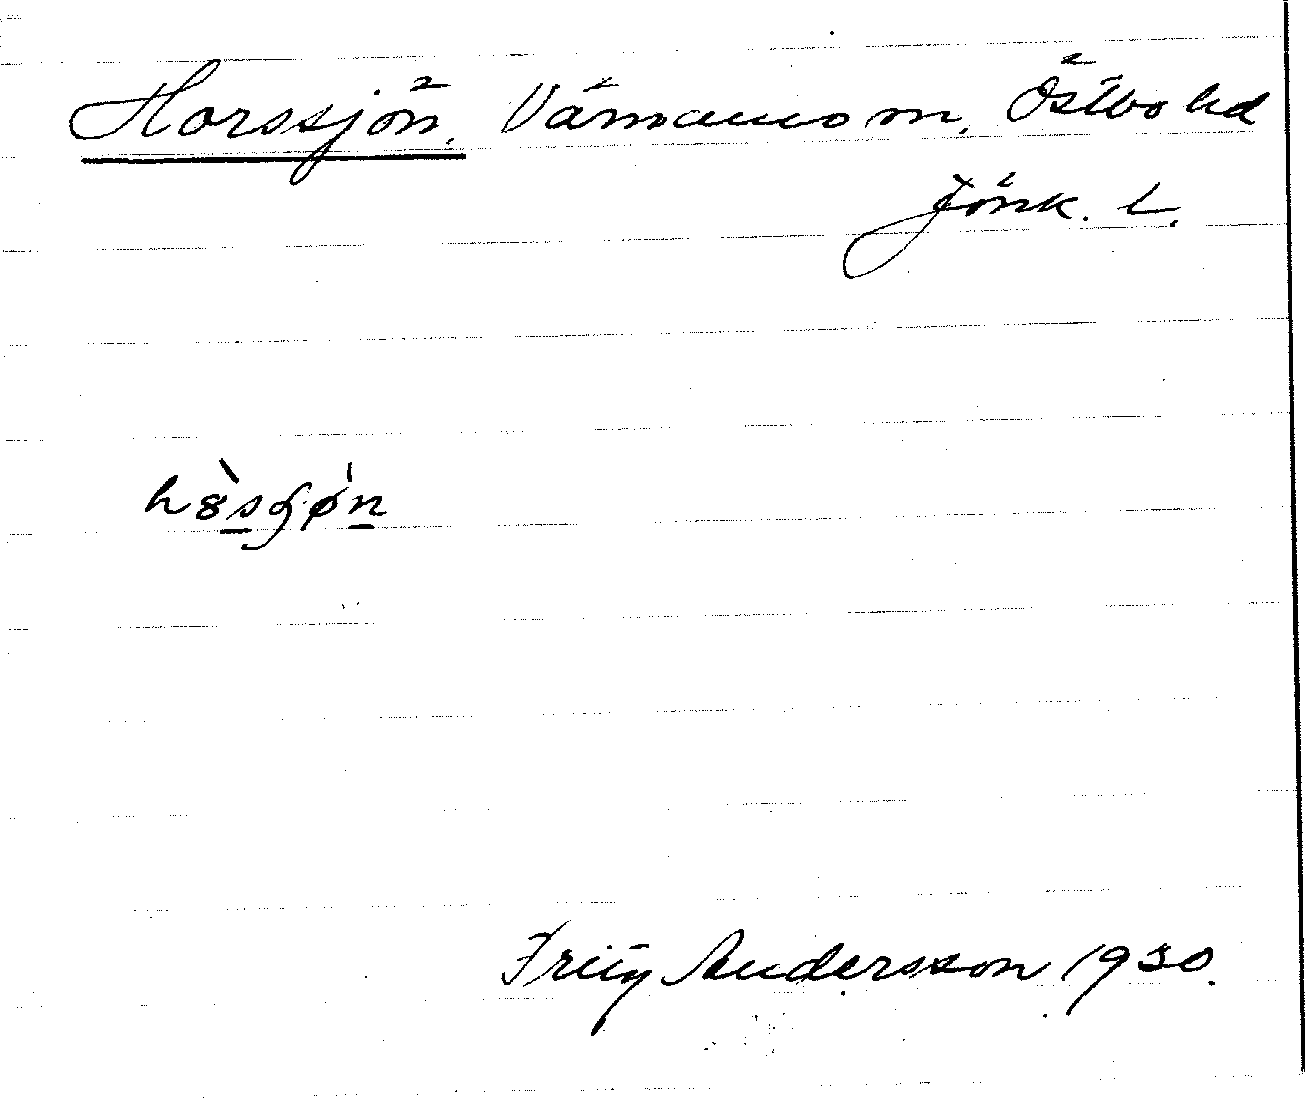 Horssjön. Värnamo sn, Östbo hd
Jönk. l.
Fritz Andersson 1930.